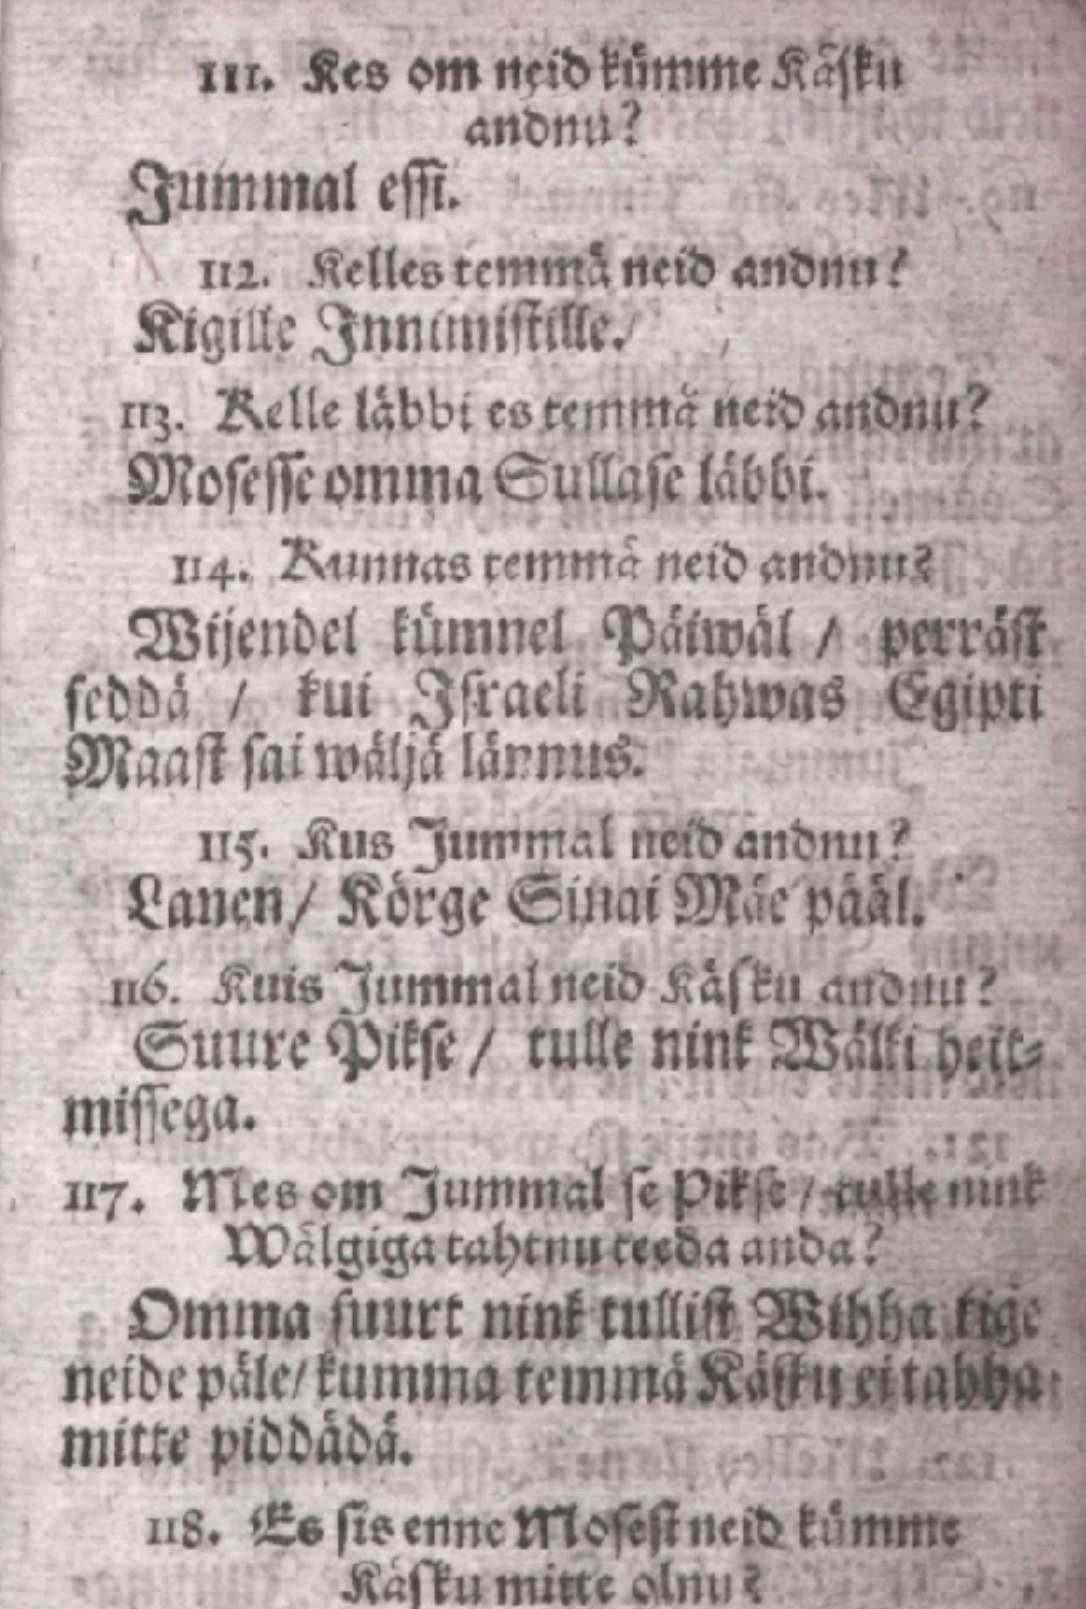 111. Kes om neid kümme Käsku
andnu?
Jummal essi.
112. Kelles temmä neid andnu?
Kigille Innimistille.
113. Kelle läbbi es temmä neid andnu?
Mosesse omma Sullase läbbi.
114. Kunnas temmä neid andnu?
Wijendel kümnel Päiwäl / perräst
seddä / kui Israeli Rahwas Egipti
Maast sai wäljä lännus.
115. Kus Jummal neid andnu?
Lanen / Körge Sinai Mäe pääl.
116. Kuis Jummal neid Käsku andnu?
Suure Pikse / tulle nink Wälki heit-
missega.
117. Mes om Jummal se Pikse / tulle nink
Wälgiga tahtnu teeda anda?
Omma suurt nink tullist Wihha kige
neide päle / kumma temmä Käsku ei tahha
mitte piddädä.
118. Es sis enne Mosest neid kümme
Käsku mitte olnu?